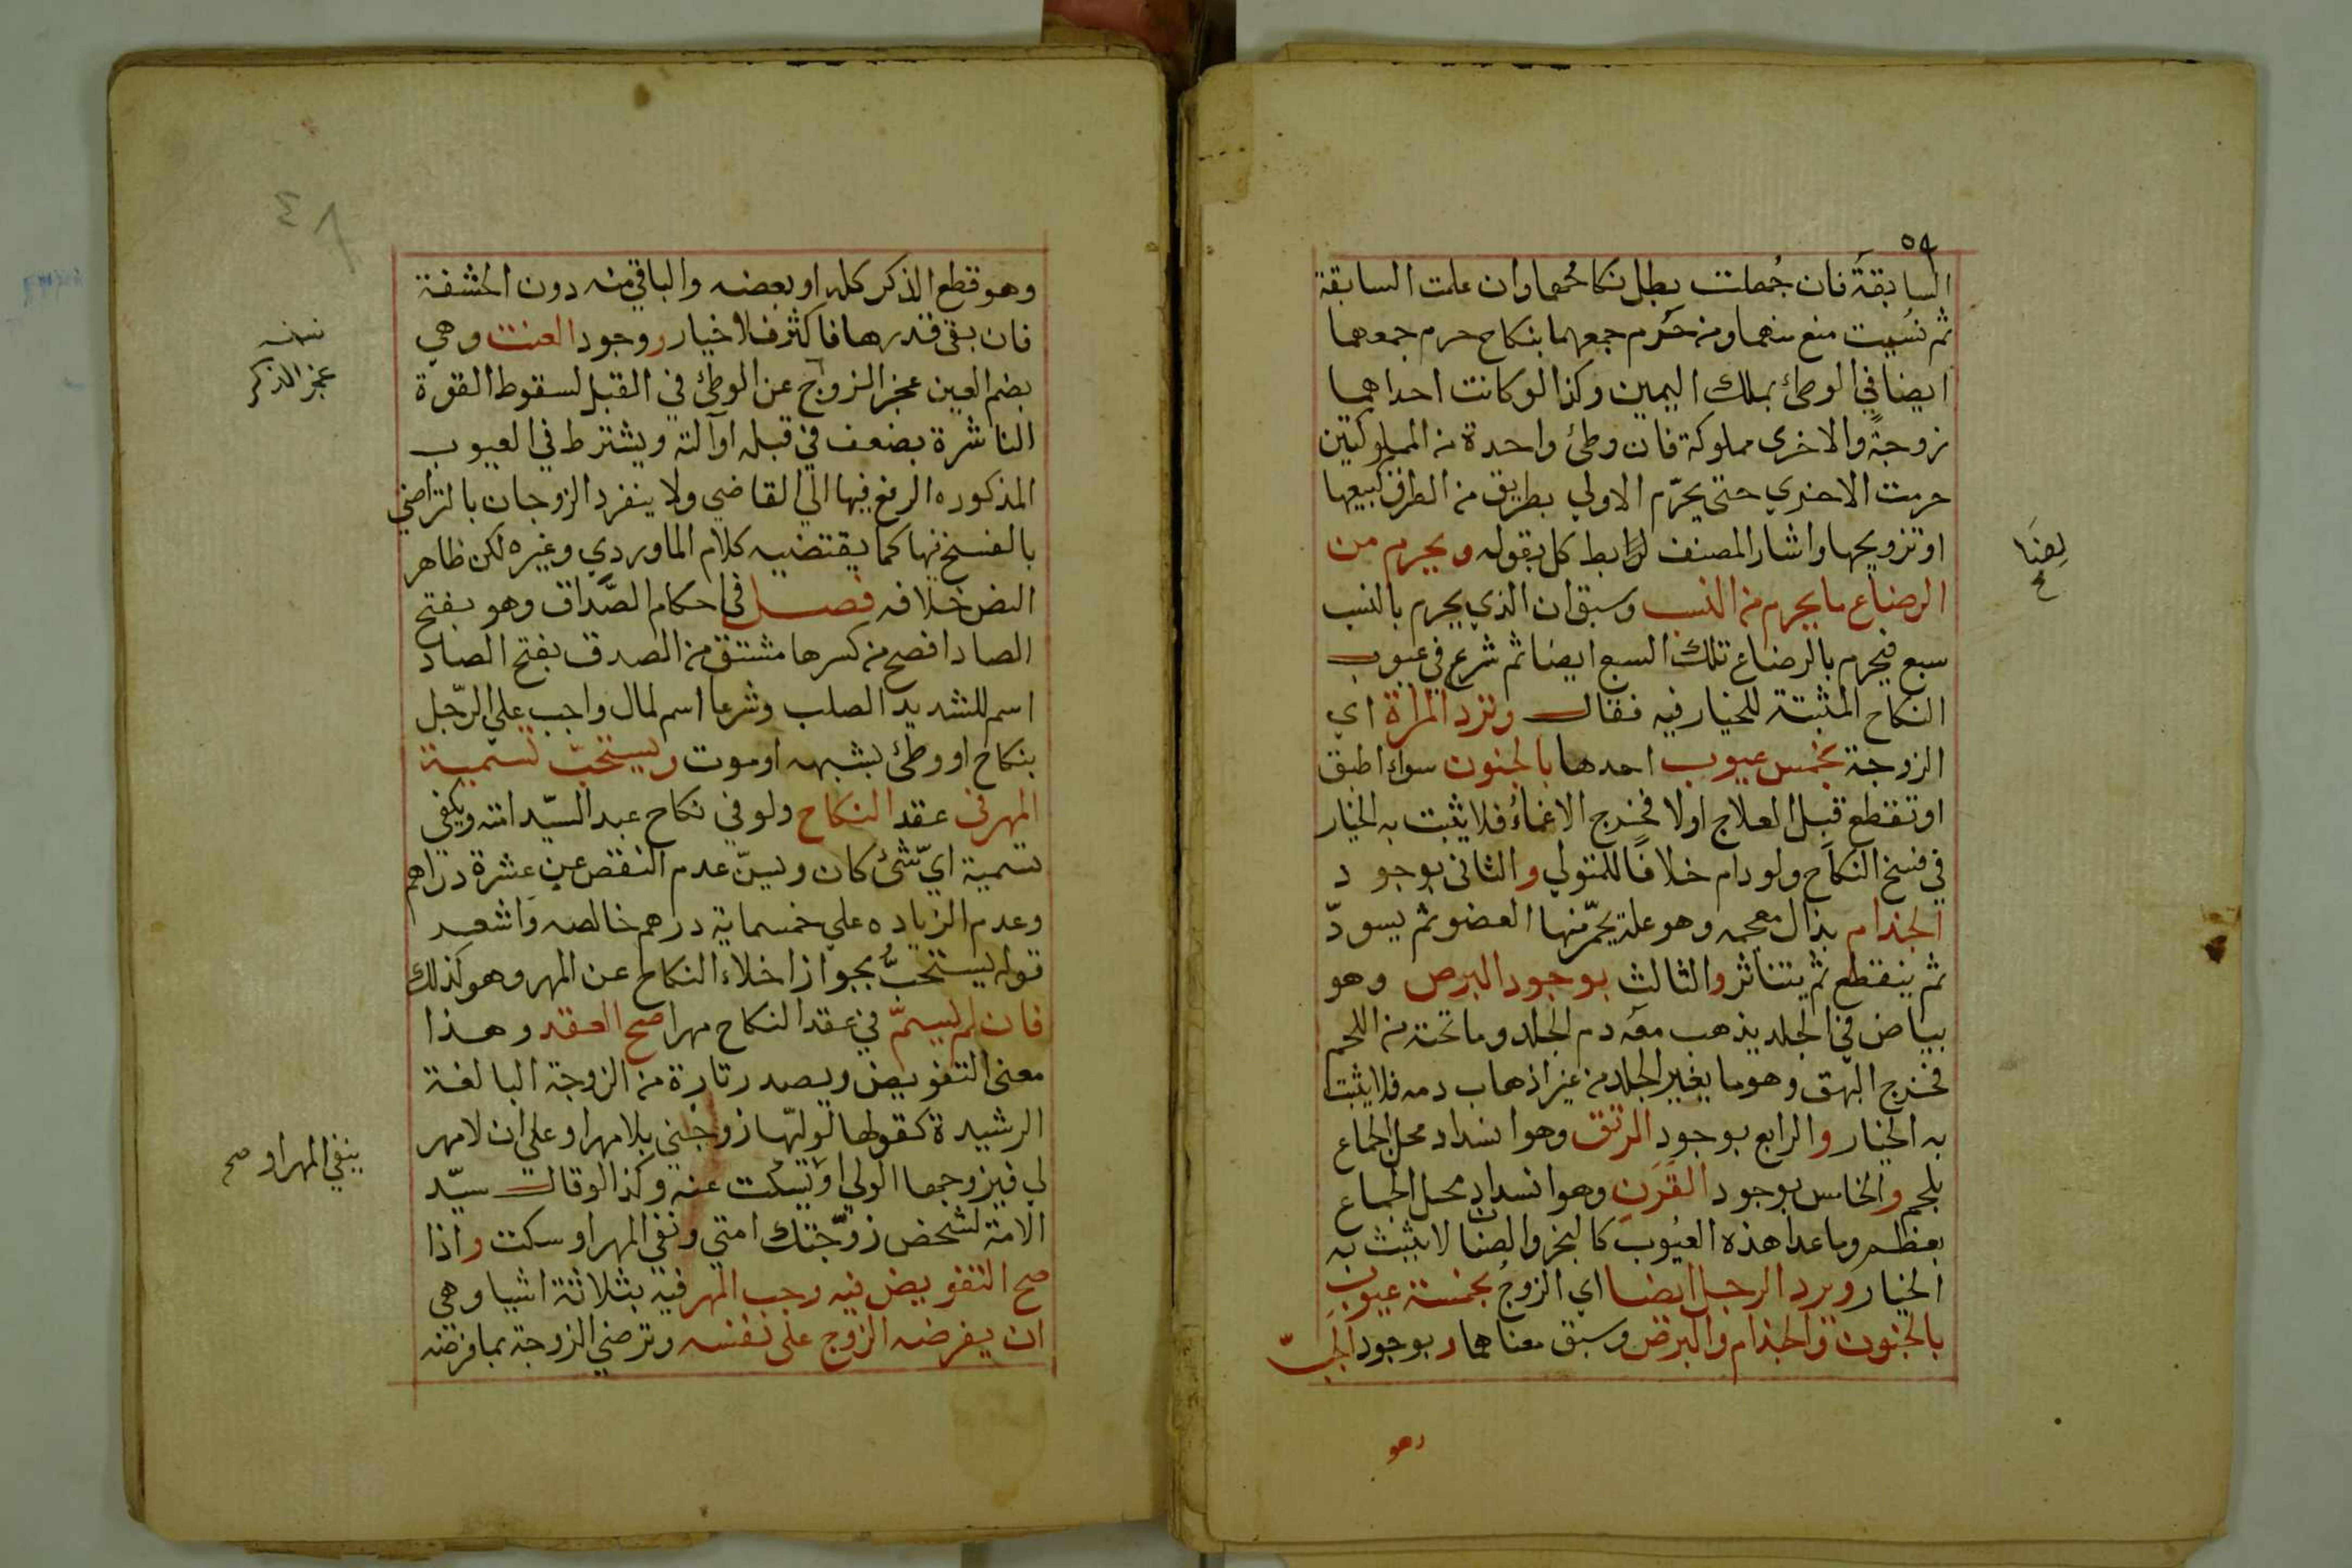 ٥٩
السابقة فان جُهلت بطل نكاحُهما وان علمت السابقة
ثم نسُيت منع منهما ومن حَرُم جمعهما بنكاح حرم جمعهما
ايضا في الوطئ بملك اليمين وكذا لو كانت احداهما
زوجةً والاخرى مملوكة فان وطئ واحدة من المملوكتين
حرمت الاخري حتى يحرّم الاولي بطريق من الطرق كبيعها
او تزويجها واشار المصنف لضابط كل بقوله ويحرم من
الرضاع ما يحرم من النسب وسبق ان الذي يحرم بالنسب
سبع فيحرم بالرضاع تلك السبع ايضا ثم شرع في عيوب
النكاح المثبتة للخيار فيه فقال وترد المراة اي
الزوجة بخمس عيوب احدها بالجنون سواء اطبق
او تقطع قبل العلاج او لا فخرج الاغماءُ فلا يثبت به الخيار
في فسخ النكاح ولو دام خلافًا للمتولي والثاني بوجود
الجذام بذال معجمه وهو علة يحمّر منها العضو ثم يسودّ
ثم ينقطع ثم يتناثر والثالث بوجود البرص وهو
بياض في الجلد يذهب معه دم الجلد وما تحته من اللحم
فخرج البهق وهو ما يغير الجلد من غير اذهاب دمه فلا يثبت
به الخيار والرابع بوجود الرتق وهو انسداد محل الجماع
بلحم والخامس بوجود القَرَن وهو انسداد محل الجماع
بعظم وما عدا هذه العيُوب كالبخر والصنان لا يثبت به
الخيار ويرد الرجل ايضا اي الزوجُ بخمسة عيوب
بالجنون والجذام والبرص وسبق معناها وبوجود الجَبّ
وهو
٤٨
وهو قطع الذكر كله او بعضه والباقي منه دون الحشفة
فان بقي قدرها فاكثر فلا خيار ووجود العنت وهي
بضم العين عجز الزوج عن الوطئ في القبل لسقوط القوة
الناشرة بضعف في قبله او آلته ويشترط في العيوب
المذكوره الرفع فيها الي القاضي ولا ينفرد الزوجان بالتراضي
بالفسخ فيها كما يقتضيه كلام الماوردي وغيره لكن ظاهر
النص خلافه فصل في احكام الصَّداق وهو بفتح
الصاد افصح من كسرها مشتق من الصدق بفتح الصاد
اسم للشديد الصلب وشرعا اسم لمال واجب علي الرّجل
بنكاح او وطئ بشبهه او موت ويستحبّ تسمية
المهر في عقد النكاح ولو في نكاح عبد السيّد امته ويكفي
تسمية ايّ شئ كان ويسنّ عدم النقص عن عشرة دراهم
وعدم الزياده علي خمسماية درهم خالصه واشعر
قوله يستحبُّ بجواز اخلاء النكاح عن المهر وهو كذلك
فان لم يسمّ في عقد النكاح مهرا صح العقد وهذا
معنى التفويض ويصدر تارة من الزوجة البالغة
الرشيدة كقولها لوليّها زوجني بلا مهر او علي ان لا مهر
لي فيزوجها الولي او يسكت عنه وكذا لو قال سيّد
الامة لشخص زوّجتك امتي ونفي المهر او سكت واذا
صح التفويض فيه وجب المهر فيه بثلاثة اشيا وهي
ان يفرضه الزوج على نفسه وترضي الزوجة بما فرضه
نسخه
عجز الذكر
ينفي المهر او صح